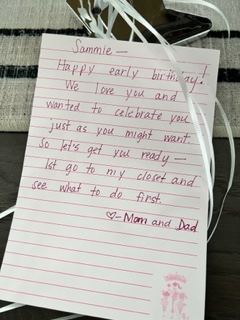 Sammie —
Happy early birthday!
We love you and
wanted to celebrate you
just as you might want.
So let's get you ready —
1st go to my closet and
see what to do first.
♡- Mom and Dad